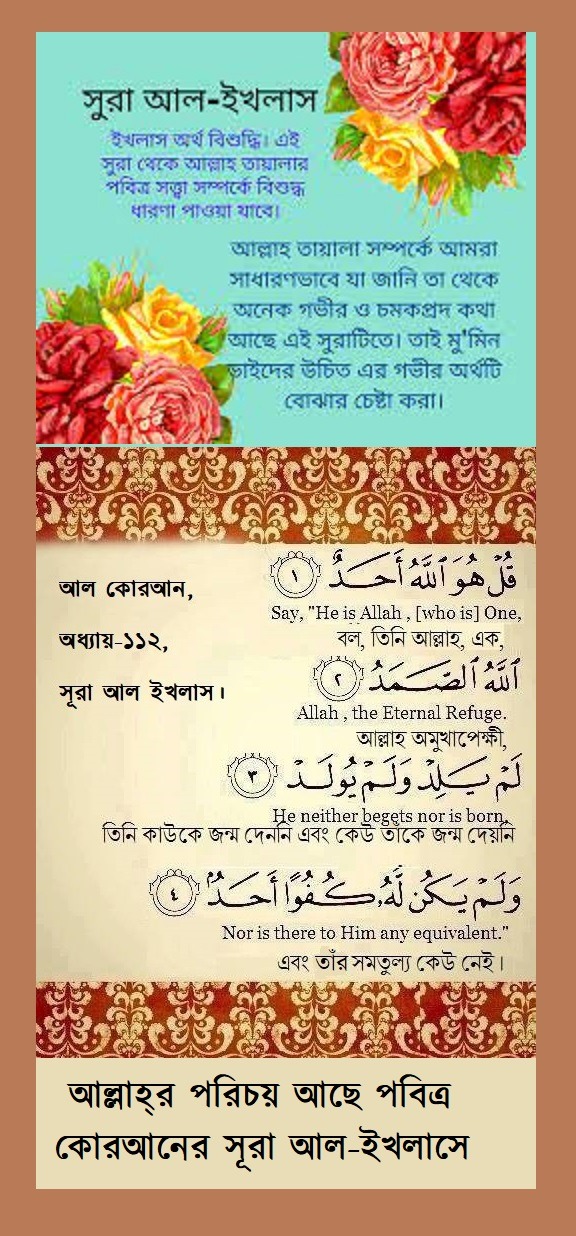 সুরা আল-ইখলাস
ইখলাস অর্থ বিশুদ্ধি। এই
সুরা থেকে আল্লাহ তায়ালার
পবিত্র সত্ত্বা সম্পর্কে বিশুদ্ধ
ধারণা পাওয়া যাবে।
আল্লাহ তায়ালা সম্পর্কে আমরা
সাধারণভাবে যা জানি তা থেকে
অনেক গভীর ও চমকপ্রদ কথা
আছে এই সুরাটিতে। তাই মু'মিন
ভাইদের উচিত এর গভীর অর্থটি
বোঝার চেষ্টা করা।
আল কোরআন,
অধ্যায়-১১২,
সূরা আল ইখলাস।
قُلْ هُوَ ٱللَّهُ أَحَدٌ ١
Say, "He is Allah , [who is] One,
বল, তিনি আল্লাহ, এক,
ٱللَّهُ ٱلصَّمَدُ ٢
Allah , the Eternal Refuge.
আল্লাহ অমুখাপেক্ষী,
لَمْ يَلِدْ وَلَمْ يُولَدْ ٣
He neither begets nor is born,
তিনি কাউকে জন্ম দেননি এবং কেউ তাঁকে জন্ম দেয়নি
وَلَمْ يَكُن لَّهُۥ كُفُوًا أَحَدٌۢ ٤
Nor is there to Him any equivalent."
এবং তাঁর সমতুল্য কেউ নেই।
আল্লাহ্‌র পরিচয় আছে পবিত্র
কোরআনের সূরা আল-ইখলাসে